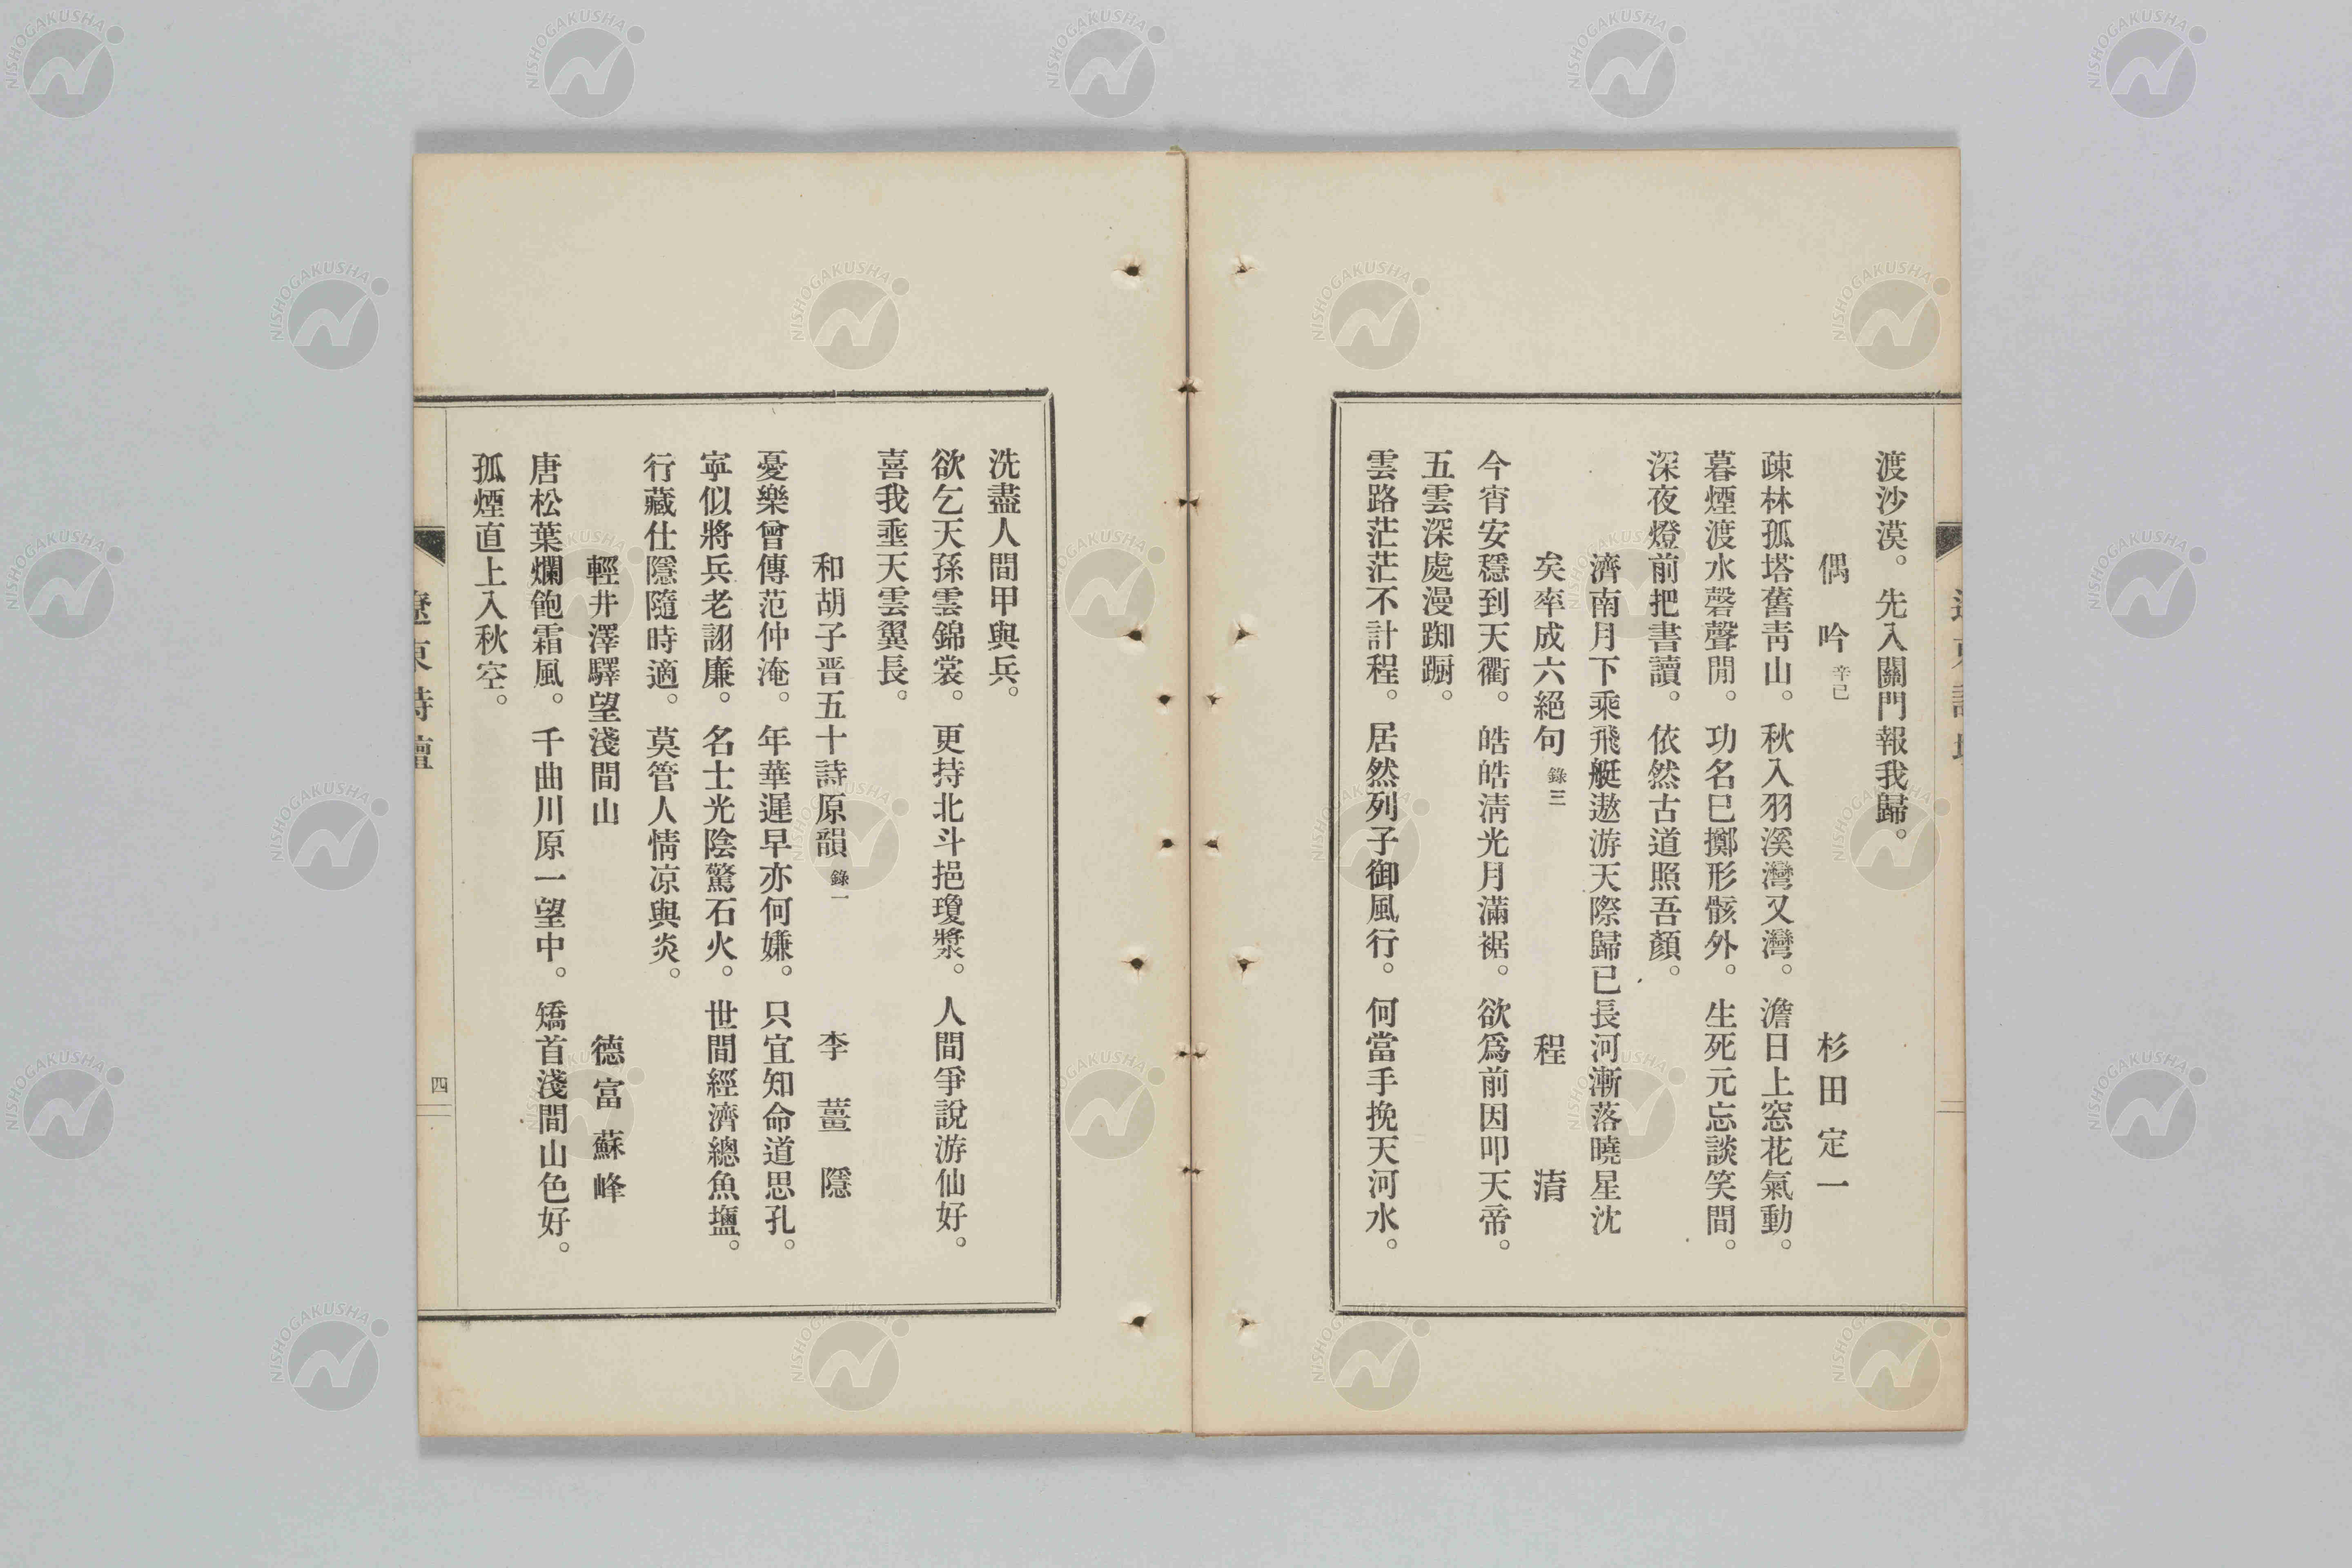 渡沙漠。先入關門報我歸。
偶吟 辛巳 杉田定一
疎林孤塔舊靑山。秋入羽溪灣又灣。澹日上窓花氣動。
暮煙渡水磬聲閒。功名巳擲形骸外。生死元忘談笑間。
深夜燈前把書讀。依然古道照吾顏。
濟南月下乘飛艇遨游天際歸已長河漸落曉星沈
矣率成六絕句 錄三 程淸
今宵安穩到天衢。皓皓淸光月滿裾。欲爲前因叩天帝。
五雲深處漫踟蹰。
雲路茫茫不計程。居然列子御風行。何當手挽天河水。
洗盡人間甲與兵。
欲乞天孫雲錦裳。更持北斗挹瓊漿。人間爭說游仙好。
喜我垂天雲翼長。
和胡子晋五十詩原韻 錄一 李薑隱
憂樂曾傳范仲淹。年華遲早亦何嫌。只宜知命道思孔。
寧似將兵老詡廉。名士光陰驚石火。世間經濟總魚鹽。
行藏仕隱隨時適。莫管人情凉與炎。
輕井澤驛望淺間山 德富蘇峰
唐松葉爛飽霜風。千曲川原一望中。矯首淺間山色好。
孤煙直上入秋空。
遼東詩壇
四
NISHOGAKUSHA